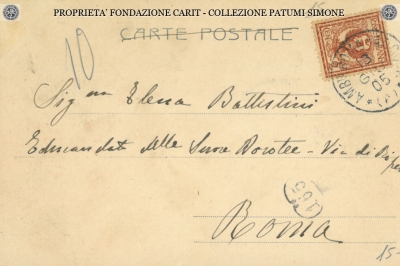 PROPRIETA' FONDAZIONE CARIT - COLLEZIONE PATUMI SIMONE
CARTE POSTALE
10
Sig na Elena Battistini
Educandato delle Suore Dorotee - Via di
165
Roma
15-